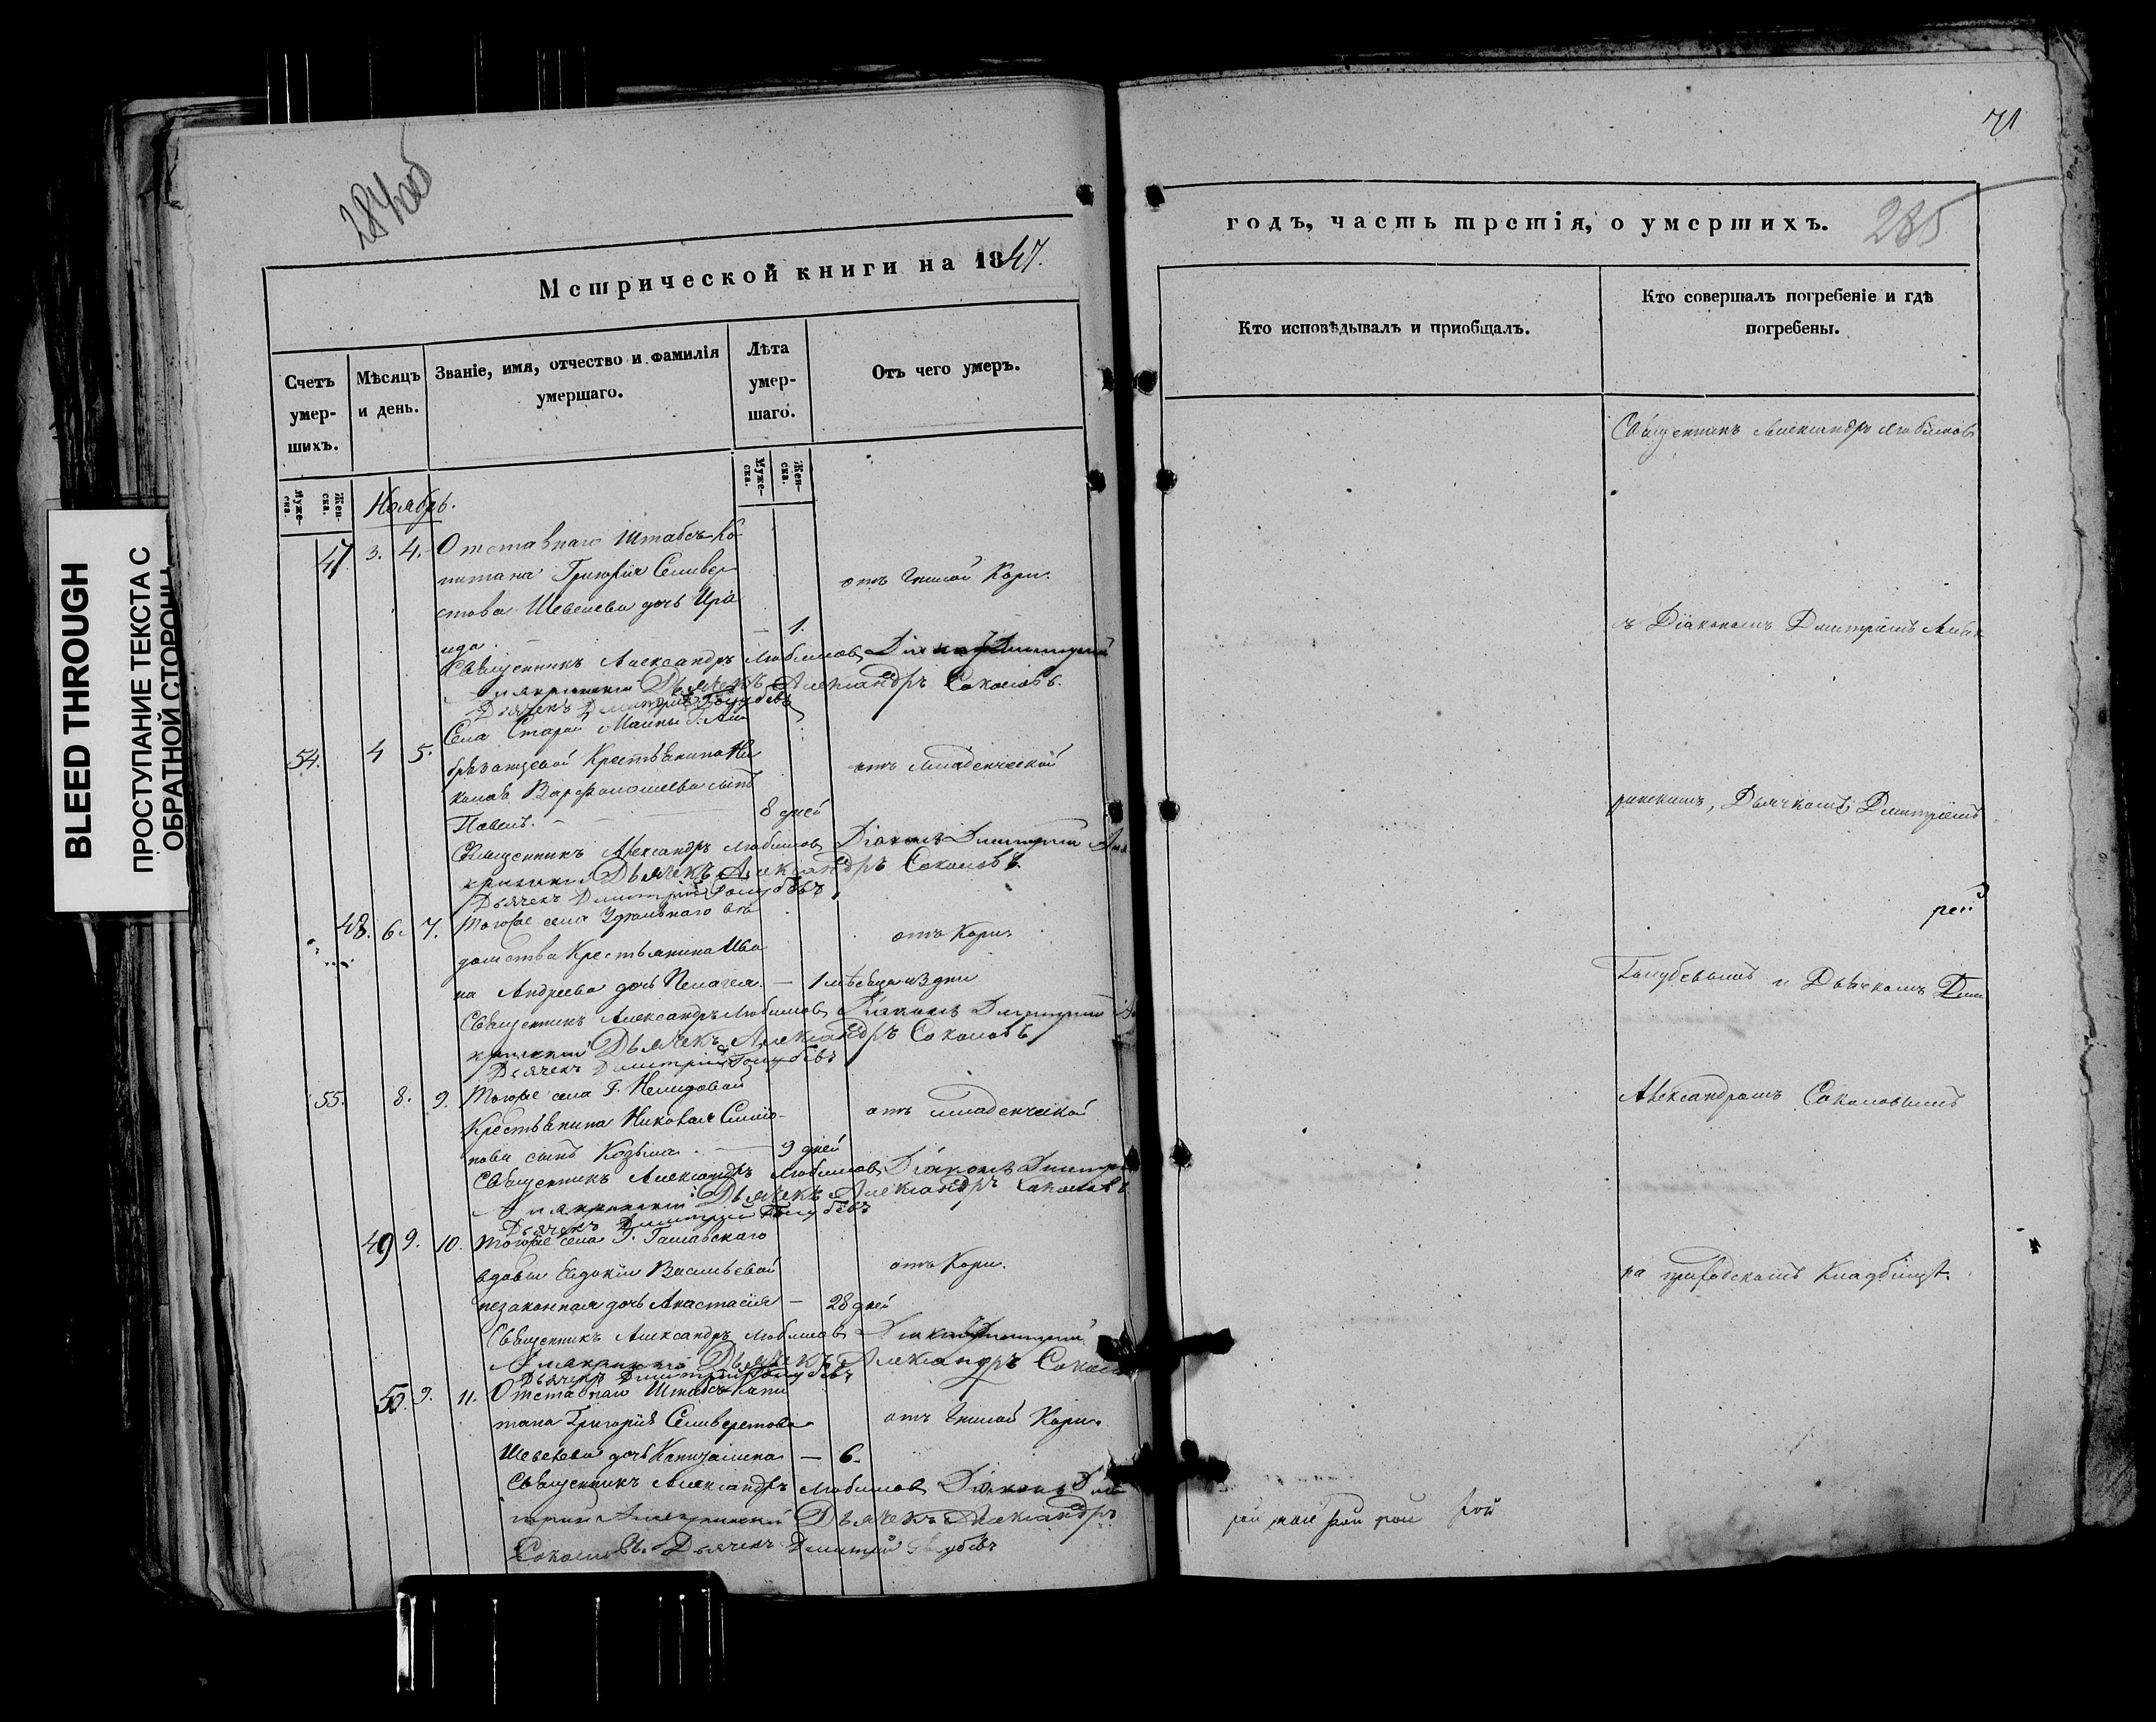 284 об
Метрической книги на 1847.
Счетъ умер-шихъ.
Мѣсяцъ и день.
Званіе, имя, отчество и фамилія умершаго.
Лѣта умер-шаго.
Отъ чего умеръ.
Муже-ска.
Жен-ска.
Муже-ска.
Жен-ска.
Ноябрь.
47. 3. 4. Отставнаго Штабсъ-Ка
питана Григорія Селивер
стова Шевелева дочь Ира
ида. 1. отъ гнилой Кори.
Священникъ Александръ Любимовъ
Дьячекъ Александръ Соколовъ.
Дьячекъ Димитрій Голубевъ
54. 4 5. Села Старой Майны Г.
Крестьянина Ни
колая Варфоломеева сынъ
Павелъ. 8 дней отъ младенческой
Священникъ Александръ Любимовъ Діаконъ Димитрій
Дьячекъ Александръ Соколовъ.
Дьячекъ Димитрій Голубевъ
48. 6. 7. Тогоже села Удѣльнаго вѣ
домства Крестьянина Ива
на Андреева дочь Пелагея. — 1 мѣсяца и 3 дни отъ Кори.
Священникъ Александръ Любимовъ Діаконъ Димитрій
Дьячекъ Александръ Соколовъ
Дьячекъ Димитрій Голубевъ
55. 8. 9. Тогоже села Г. Нелидовой
Крестьянина Николая Симо-
нова сынъ Козьма. — 9 дней отъ младенческой
Священникъ Александръ Любимовъ Діаконъ Димитрі
Дьячекъ Александръ Соколовъ
Дьячекъ Димитрій Голубевъ
49 9. 10. Тогоже села Г.
вдовы Евдокіи Васильевой
незаконная дочь Анастасія — 28 дней отъ Кори.
Священникъ Александръ Любимовъ
Дьячекъ Александръ Соколо
Дьячекъ Димитрій Голубевъ
50. 9. 11. Отставнаго Штабсъ Капи
тана Григорія Селиверстова
Шевелева дочь — 6. отъ гнилой Кори.
Священникъ Александръ Любимовъ Діаконъ Дим
Дьячекъ Александръ
Соколовъ. Дьячекъ Димитрій Голубевъ
71
годъ, часть третія, о умершихъ.
235
Кто исповѣдывалъ и приобщалъ.
Кто совершалъ погребеніе и гдѣ погребены.
Священникъ Александръ Любимовъ
съ Діакономъ Димитріемъ
Дьячкомъ Димитріемъ
Голубевымъ и Дьячкомъ
Александромъ Соколовымъ
на приходскомъ Кладбищѣ.
BLEED THROUGH
ПРОСТУПАНИЕ ТЕКСТА С
ОБРАТНОЙ СТОРОНЫ